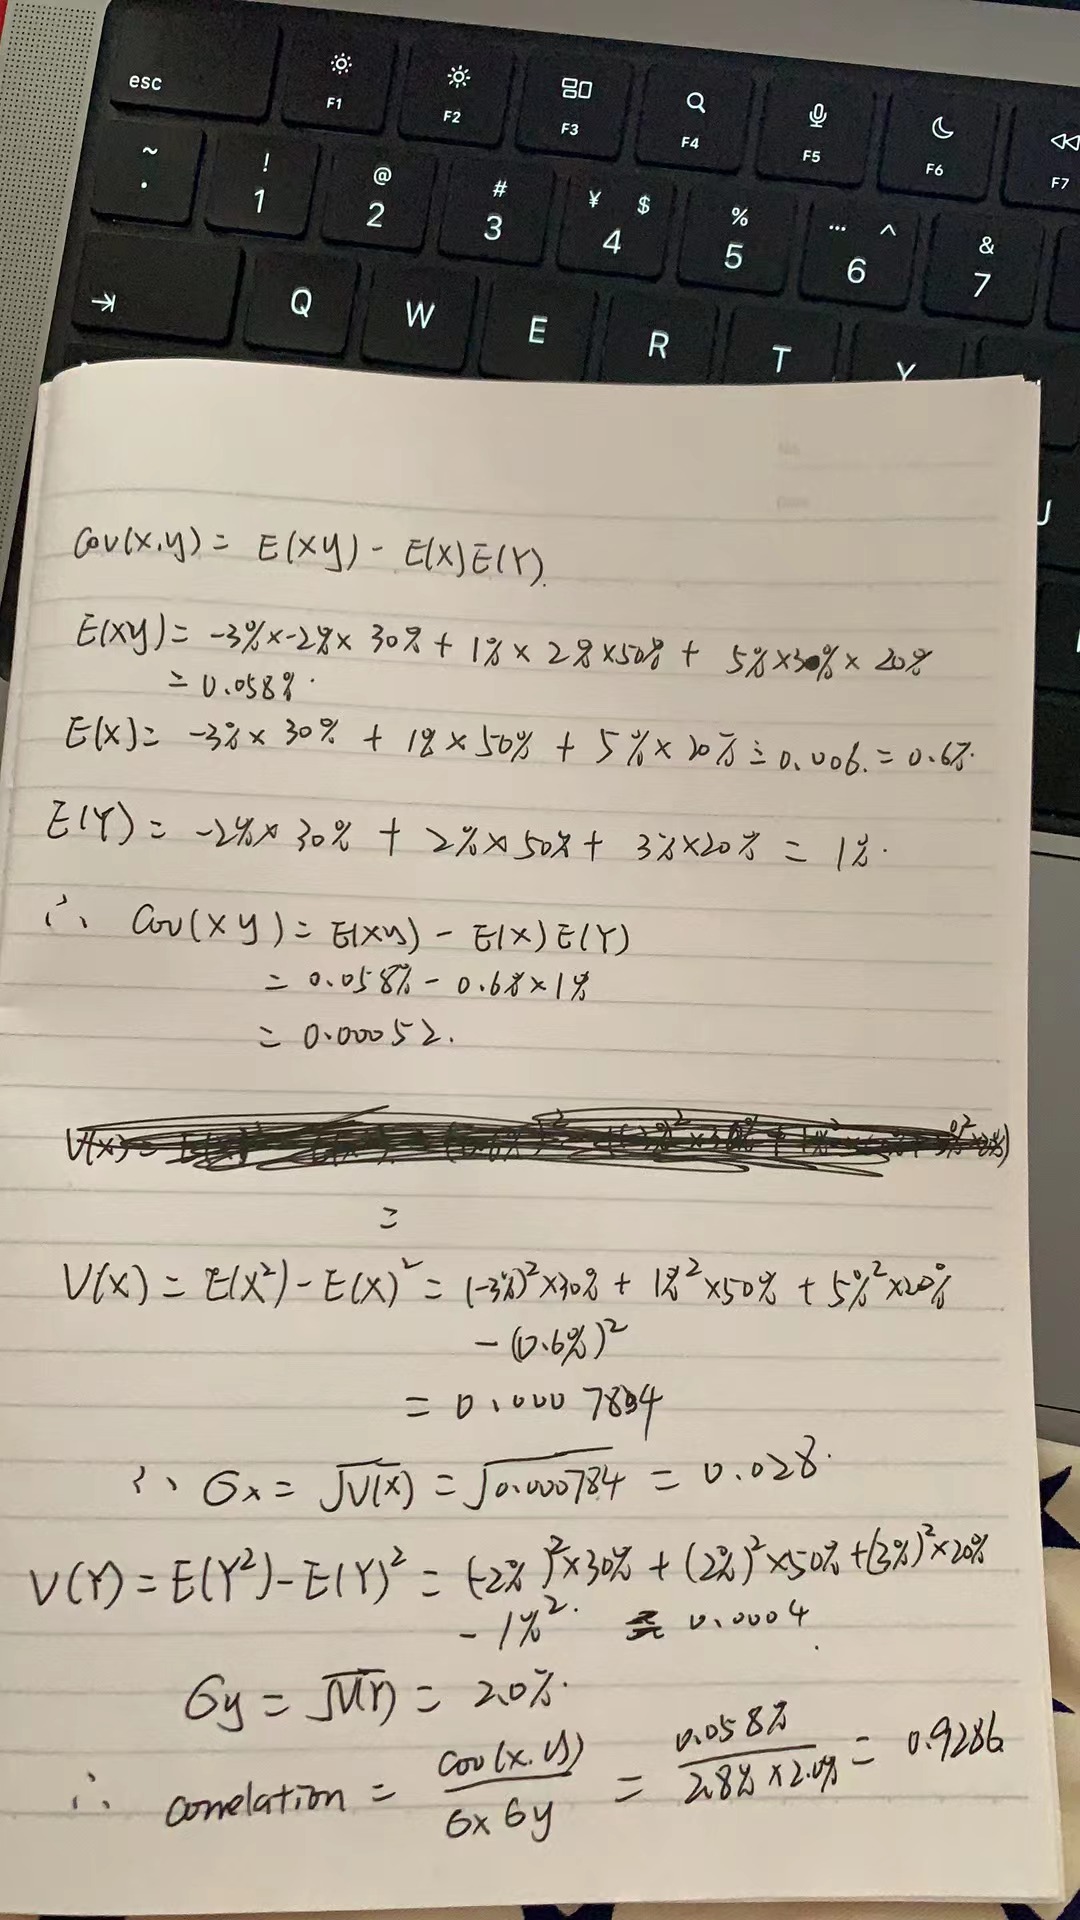 esc F1 F2 F3 F4 F5 F6 F7
~ ! @ # ¥ $ % … ^ &
· 1 2 3 4 5 6 7
Q W E R T Y
J
Cov(x,y) = E(xy) - E(x)E(Y).
E(xy) = -3%×-2%× 30% + 1% × 2%×50% + 5%×3%× 20%
= 0.058%.
E(x) = -3%× 30% + 1% × 50% + 5%× 20% = 0.006. = 0.6%.
E(Y) = -2%× 30% + 2%×50% + 3%×20% = 1%.
∴ Cov(xy) = E(xy) - E(x)E(Y)
= 0.058% - 0.6%×1%
= 0.00052.
=
V(x) = E(x²) - E(x)² = (-3%)²×30% + 1%²×50% + 5%²×20%
- (0.6%)²
= 0.000784
∴ σx = √V(x) = √0.000784 = 0.028.
V(Y) = E(Y²) - E(Y)² = (-2%)²×30% + (2%)²×50% + (3%)²×20%
- 1%². = 0.0004
σy = √V(Y) = 2.0%.
∴ correlation = cov(x.y) / σx σy = 0.058% / 2.8%×2.0% = 0.9286